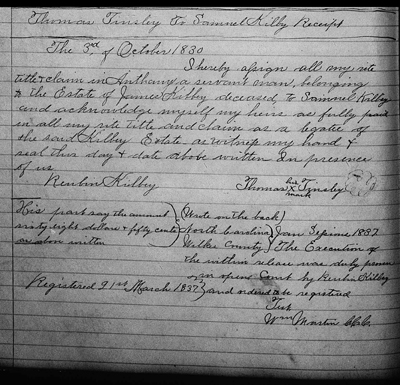 Thomas Tinsley to Samuel Kilby Receipt
The 3rd of October 1830
I hereby assign all my rite
title & claim in Anthony a servant man, belonging
to the Estate of James Kilby deceased, to Samuel Kilby
and acknowledge myself my heirs as fully paid
in all my rite title and claim as a legatee of
the said Kilby Estate as witness my hand &
seal this day & date above written In presence
of us
Reubin Kilbby Thomas his X mark Tinsley
His part say the amount
sixty eight dollars & fifty cents
as above written
Wrote on the back
North Carolina
Wilkes County
Jan 1837
The Execution of
the within release was duly proven
in open Court by Reubin Kilbby
and ordered to be registered
Registered 21st March 1837
Test
Wm Martin